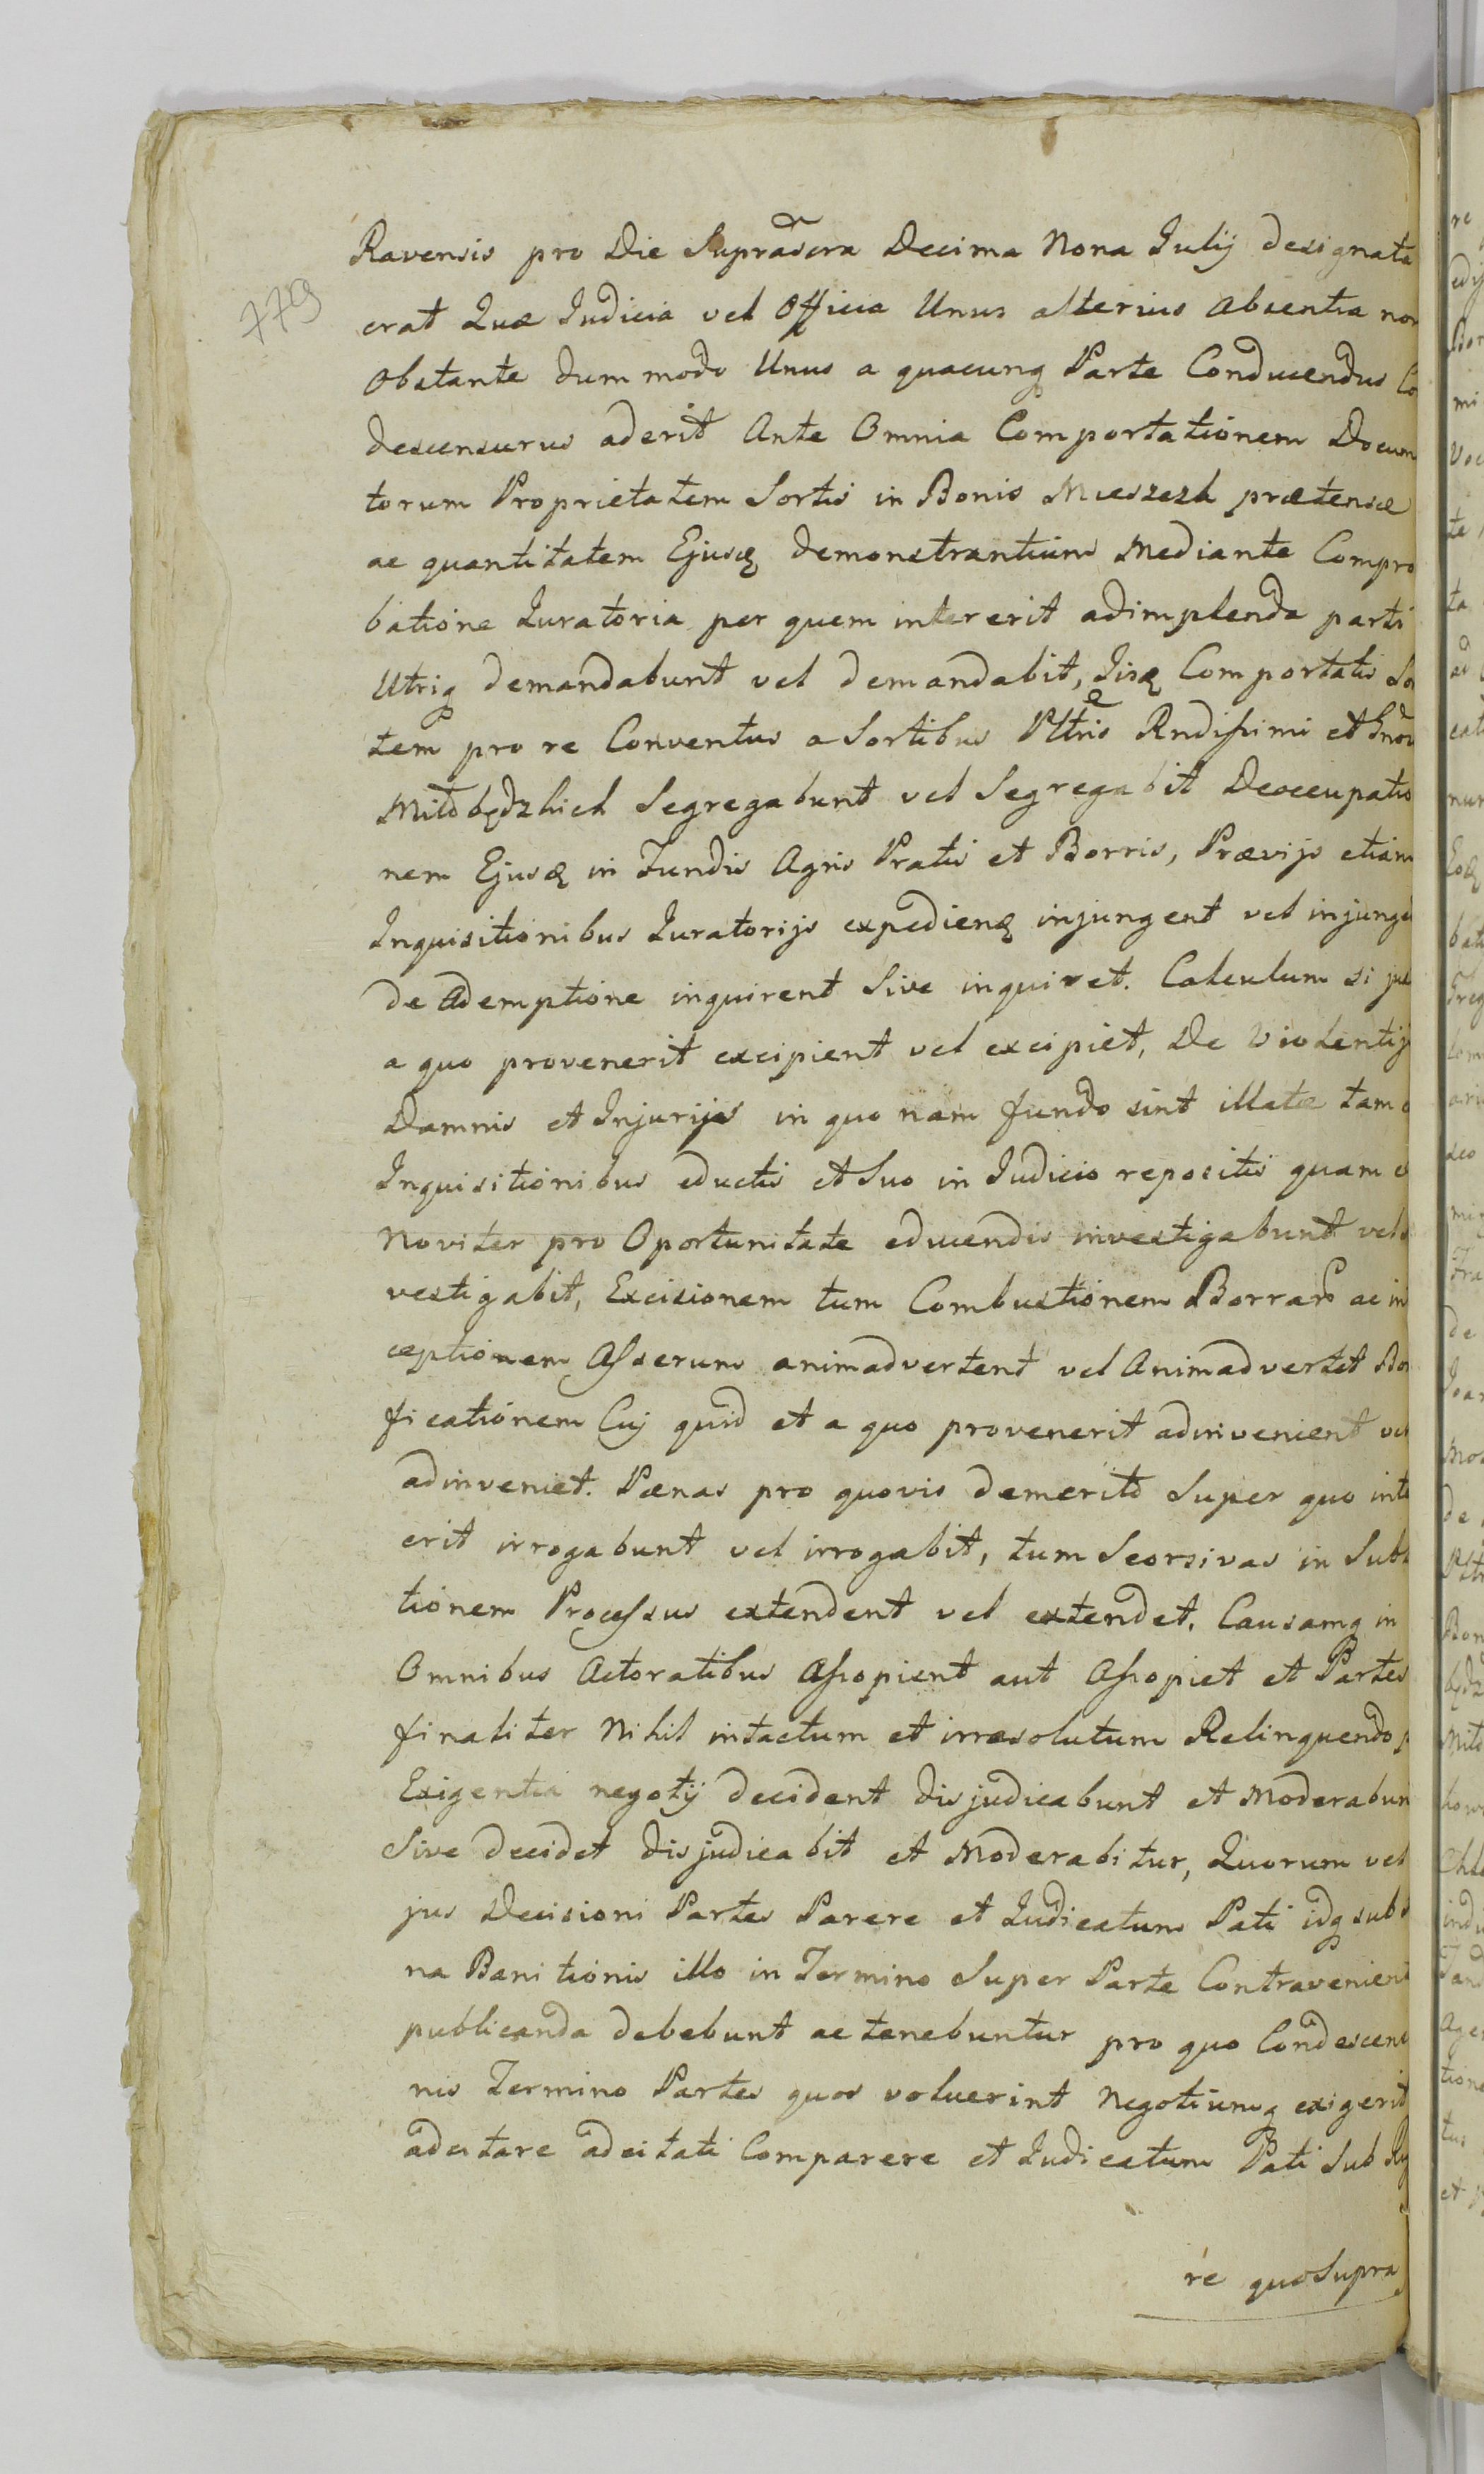 779
Ravensis pro Die Supradcra Decima Nona Julij designata
erat Quæ Judicia vel Officia Unus alterius absentia non
Obstante dummodo Unus a quacunq Parte Conducendus Co
descensurus aderit Ante Omnia Comportationem Docum
torum Proprietatem Sortis in Bonis Mieszezk prætensæ
ac quantitatem Ejusq demonstrantium Mediante Compro
batione Juratoria per quem intererit adimplenda parti
Utriq demandabunt vel demandabit, Iisq Comportatis So
tem pro re Conventus a Sortibus Pltris Rndissimi et Gnor
Miłobędzkich Segregabunt vel Segregabit Deoccupatio
nem Ejusq in Fundis Agris Pratis et Borris, Prævijs etiam
Inquisitionibus Juratorijs expedienq injungent vel injunge
de Ademptione inquirent Sive inquiret. Calculum si
a quo provenerit excipient vel excipiet, De Violentij
Damnis et Injurijs in quo nam fundo sint illatæ tam
Inquisitionibus eductis et Suo in Judicio repositis quam
Noviter pro Oportunitate educendis investigabunt vel
vestigabit, Excisionem tum Combustionem Borrar ac in
ceptionem Asserum animadvertent vel Animadvertet Bo
ficationem Cuj quid et a quo provenerit adinvenient vel
adinveniet. Pænas pro quovis demerito Super quo inte
erit irrogabunt vel irrogabit, tum Seorsivas in Subs
tionem Processus extendent vel extendet. Causamq in
Omnibus Actoratibus Assopient aut Assopiet et Partes
finaliter Nihil intactum et irresolutum Relinquendo
Exigentia negotij decident disjudicabunt et Moderabun
Sive decidet disjudicabit et Moderabitur, Quorum vel
jus Decisioni Partes Parere et Judicatum Pati idq sub
na Banitionis illo in Termino Super Parte Contravenient
publicanda debebunt ac tenebuntur pro quo Condescens
nis Termino Partes quos voluerint Negotiumq exigerit
adcitare adcitati Comparere et Judicatum Pati Sub
re quo Supra